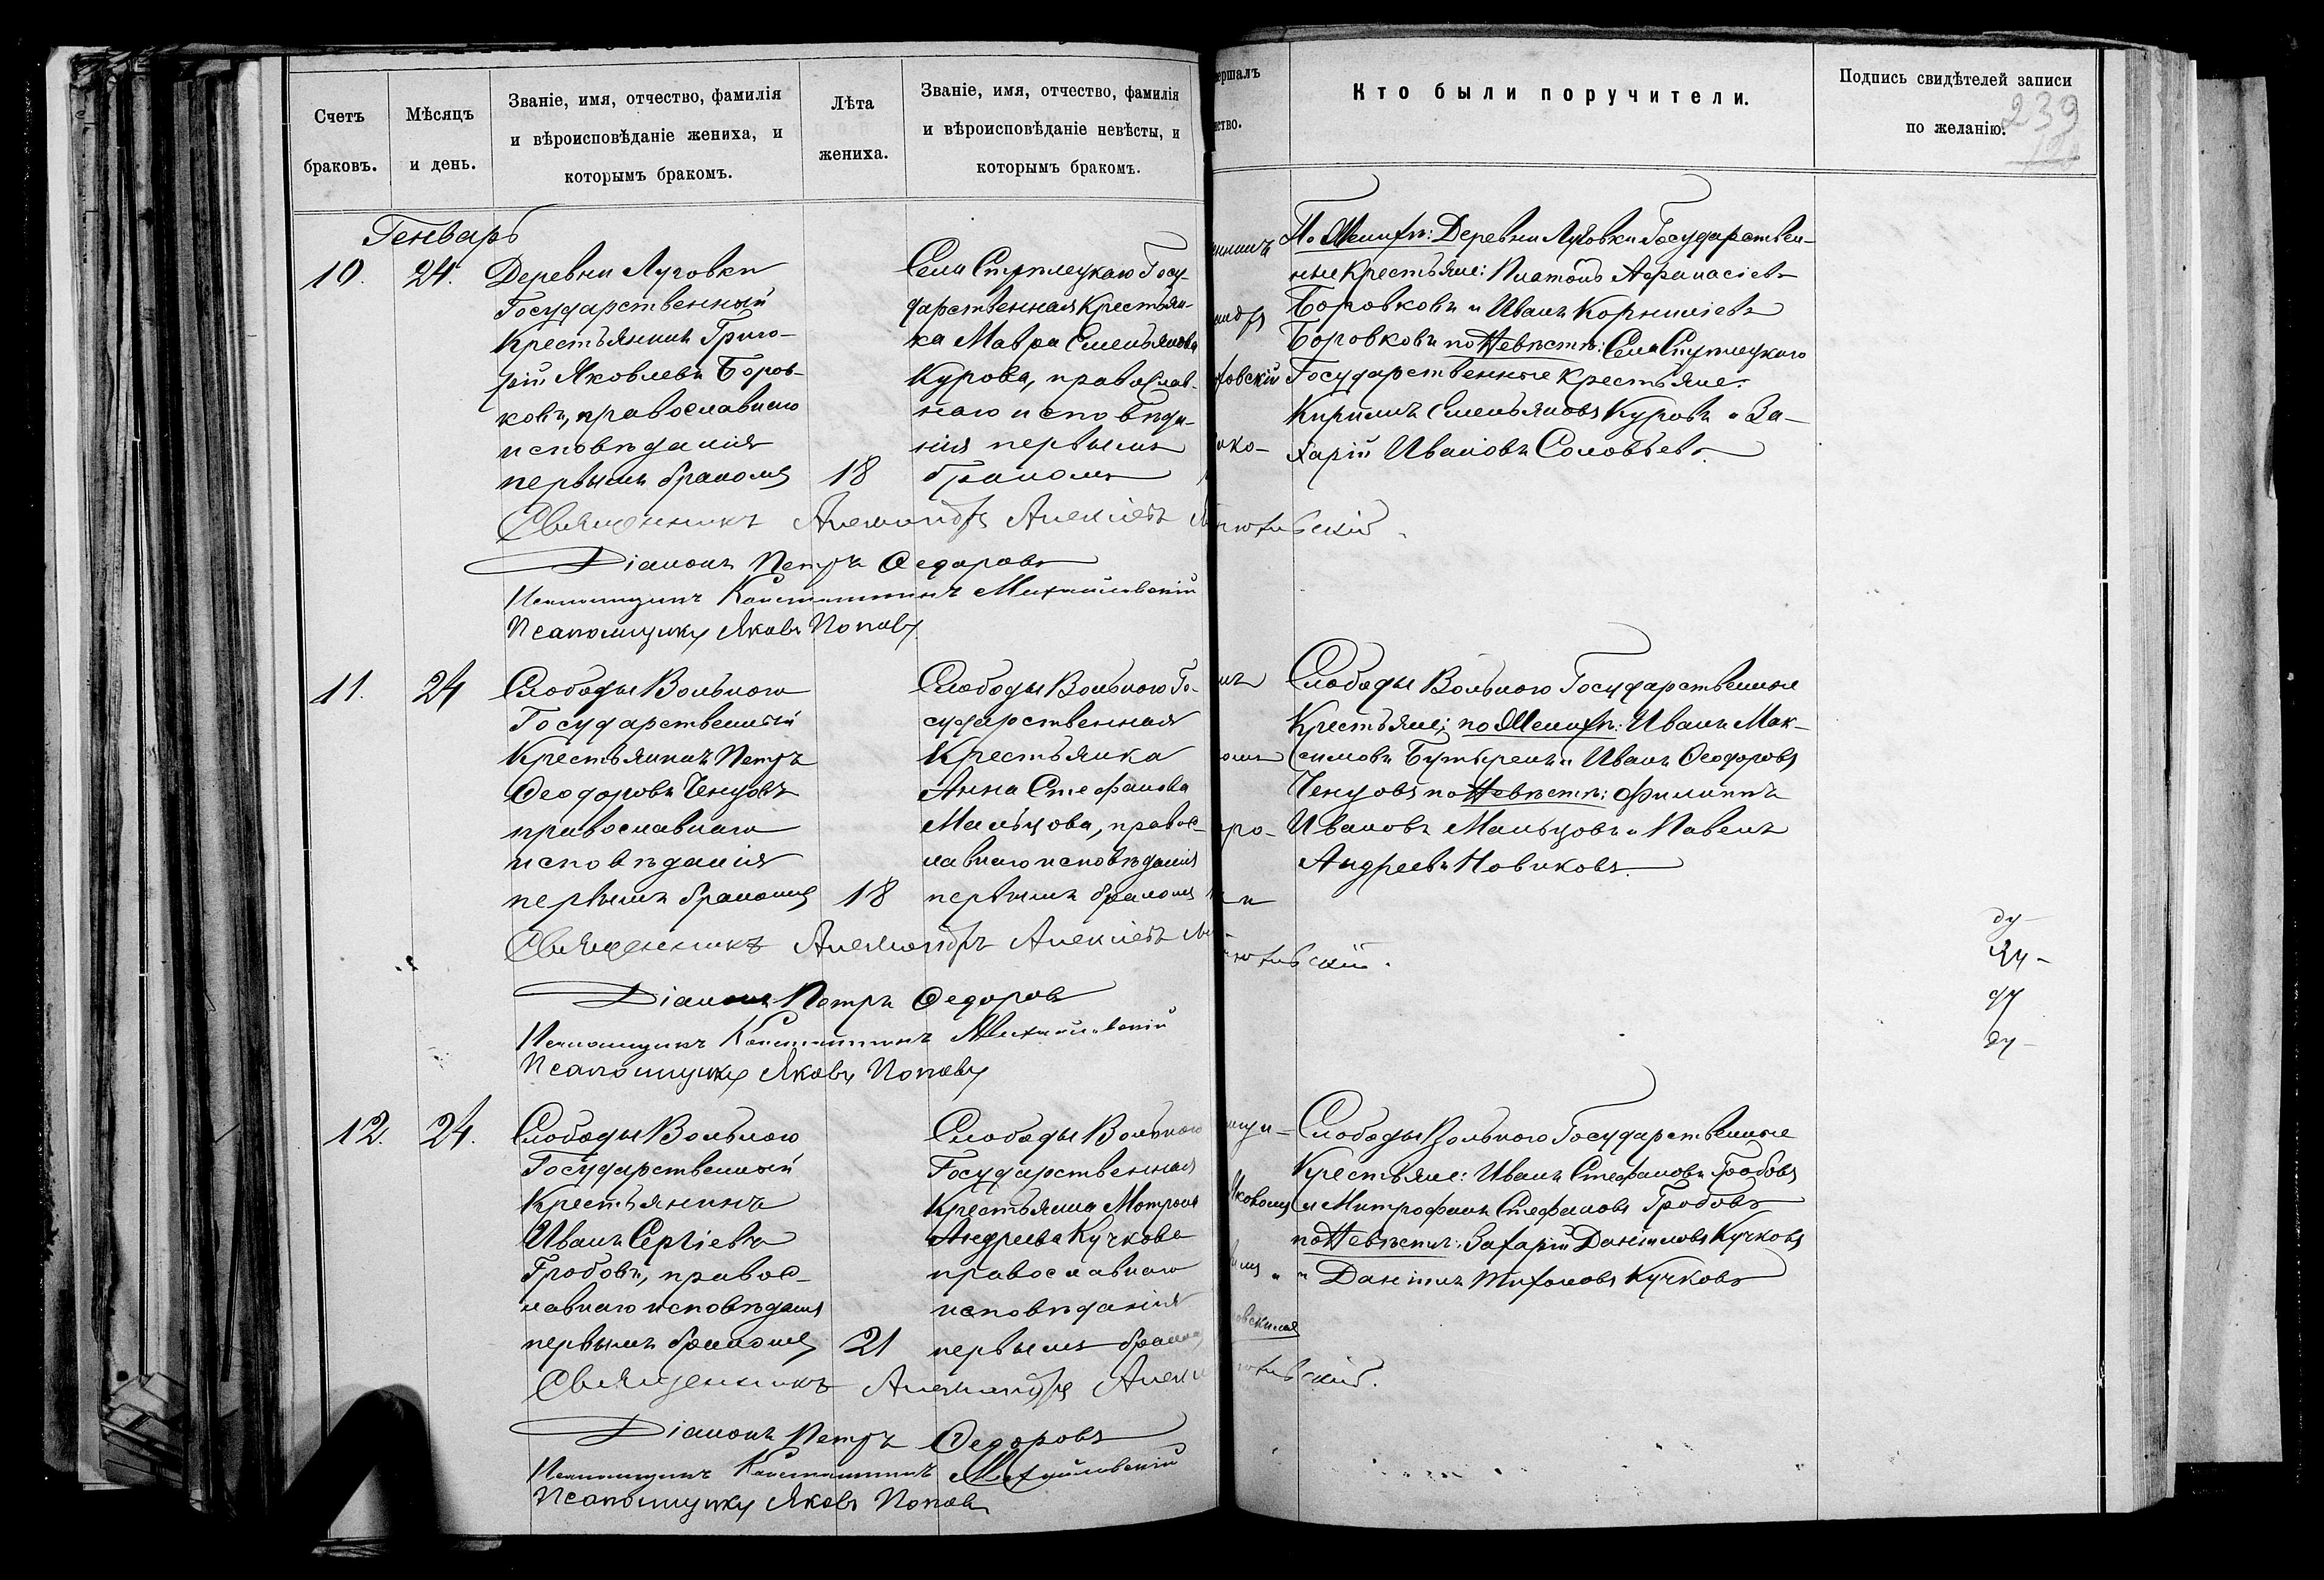 Счетъ
браковъ.
Мѣсяцъ
и день.
Званіе, имя, отчество, фамилія
и вѣроисповѣданіе жениха, и
которымъ бракомъ.
Лѣта
жениха.
Званіе, имя, отчество, фамилія
и вѣроисповѣданіе невѣсты, и
которымъ бракомъ.
Кто были поручители.
Подпись свидѣтелей записи
по желанію.
239
Генварь
10.
24.
Деревни Луговки
Государственный
Крестьянинъ Григо-
рій Яковлевъ Боров-
ковъ, православнаго
исповѣданія
первымъ бракомъ
18
Села Стрѣлецкаго Госу-
дарственная Крестьян-
ка Мавра Емельянова
Курова, православ-
наго исповѣда-
нія первымъ
бракомъ
По Женихѣ: Деревни Луговки Государствен-
ные Крестьяне: Платонъ Афанасіевъ
Боровковъ и Иванъ Корниліевъ
Боровковъ по Невѣстѣ: Села Стрѣлецкаго
Государственные Крестьяне:
Кириллъ Емельяновъ Куровъ и За-
харій Ивановъ Соловьевъ.
Священникъ Александръ Алексіевъ
Діаконъ Петръ Федоровъ
Псаломщикъ Константинъ Михайловскій
Псаломщикъ Яковъ Поповъ
11.
24
Слободы Вольного
Государственный
Крестьянинъ Петръ
Феодоровъ Ченцовъ
православнаго
исповѣданія
первымъ бракомъ
18
Слободы Вольного Го-
сударственная
Крестьянка
Анна Стефанова
Мальцова, правос-
лавнаго исповѣданія
первымъ бракомъ
Слободы Вольного Государственные
Крестьяне; по Женихѣ: Иванъ Мак-
симовъ и Иванъ Феодоровъ
Ченцовъ по Невѣстѣ: Филиппъ
Ивановъ Мальцовъ и Павелъ
Андреевъ Новиковъ.
Священникъ Александръ Алексіевъ
Діаконъ Петръ Федоровъ
Псаломщикъ Константинъ Михайловскій
Псаломщикъ Яковъ Поповъ
12.
24.
Слободы Вольного
Государственный
Крестьянинъ
Иванъ Сергіевъ
Гробовъ, правос-
лавнаго исповѣданія
первымъ бракомъ
21
Слободы Вольного
Государственная
Крестьянка Матрона
Андреева Кучкова
православнаго
исповѣданія
первымъ бракомъ
Слободы Вольного Государственные
Крестьяне: Иванъ Стефановъ Гробовъ
и Митрофанъ Стефановъ Гробовъ
по Невѣстѣ: Захарій Даніиловъ Кучковъ
и Даніилъ Тихоновъ Кучковъ
Священникъ Александръ
Діаконъ Петръ Федоровъ
Псаломщикъ Константинъ Михайловскій
Псаломщикъ Яковъ Поповъ